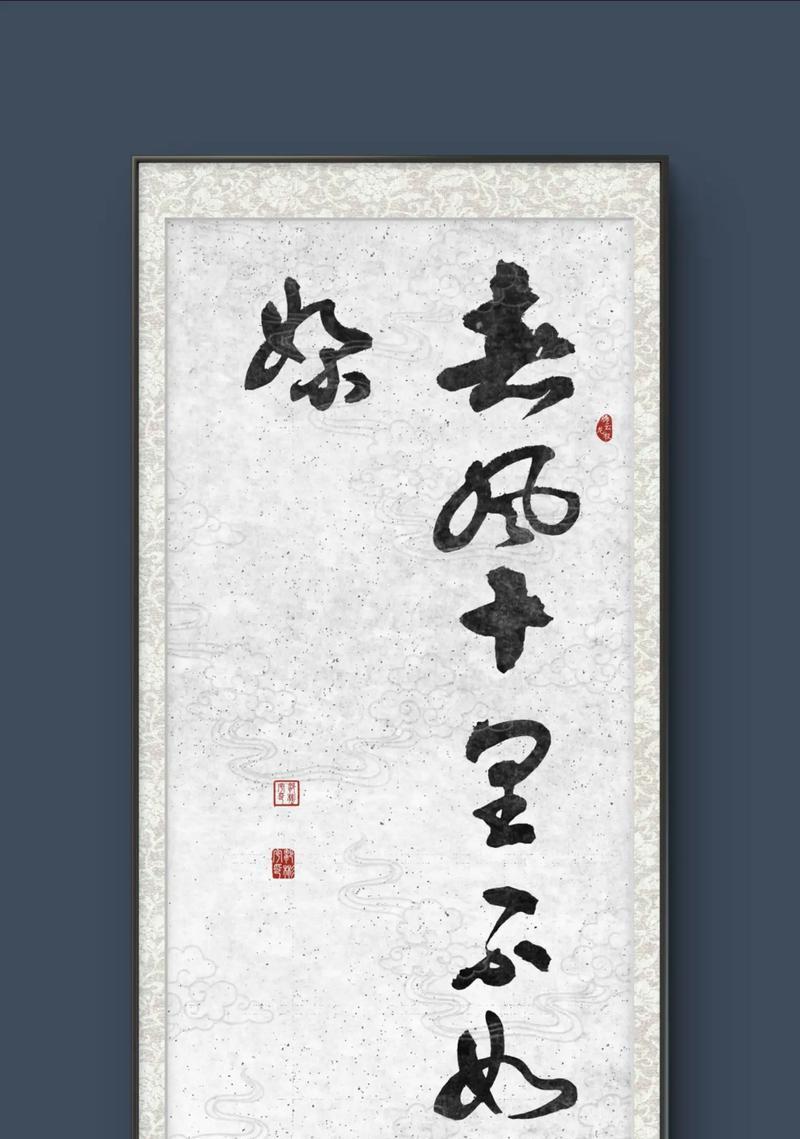 春风十里不如
絮